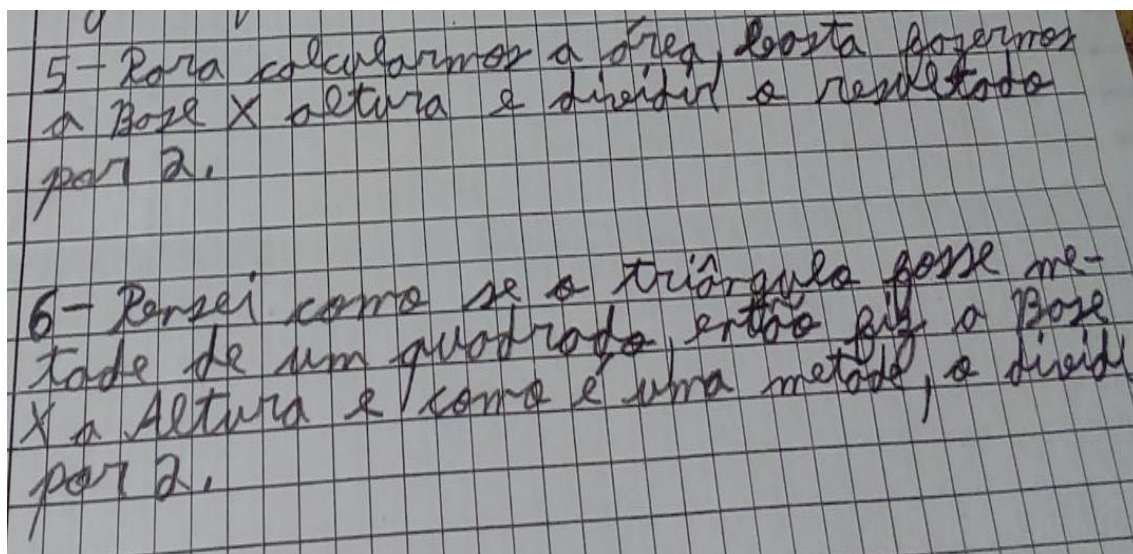 5- Para calcularmos a área, basta fazermos
a Base X altura e dividir o resultado
por 2.
6- Pensei como se o triângulo fosse me-
tade de um quadrado, então fiz a Base
X a Altura e como é uma metade, o dividi
por 2.